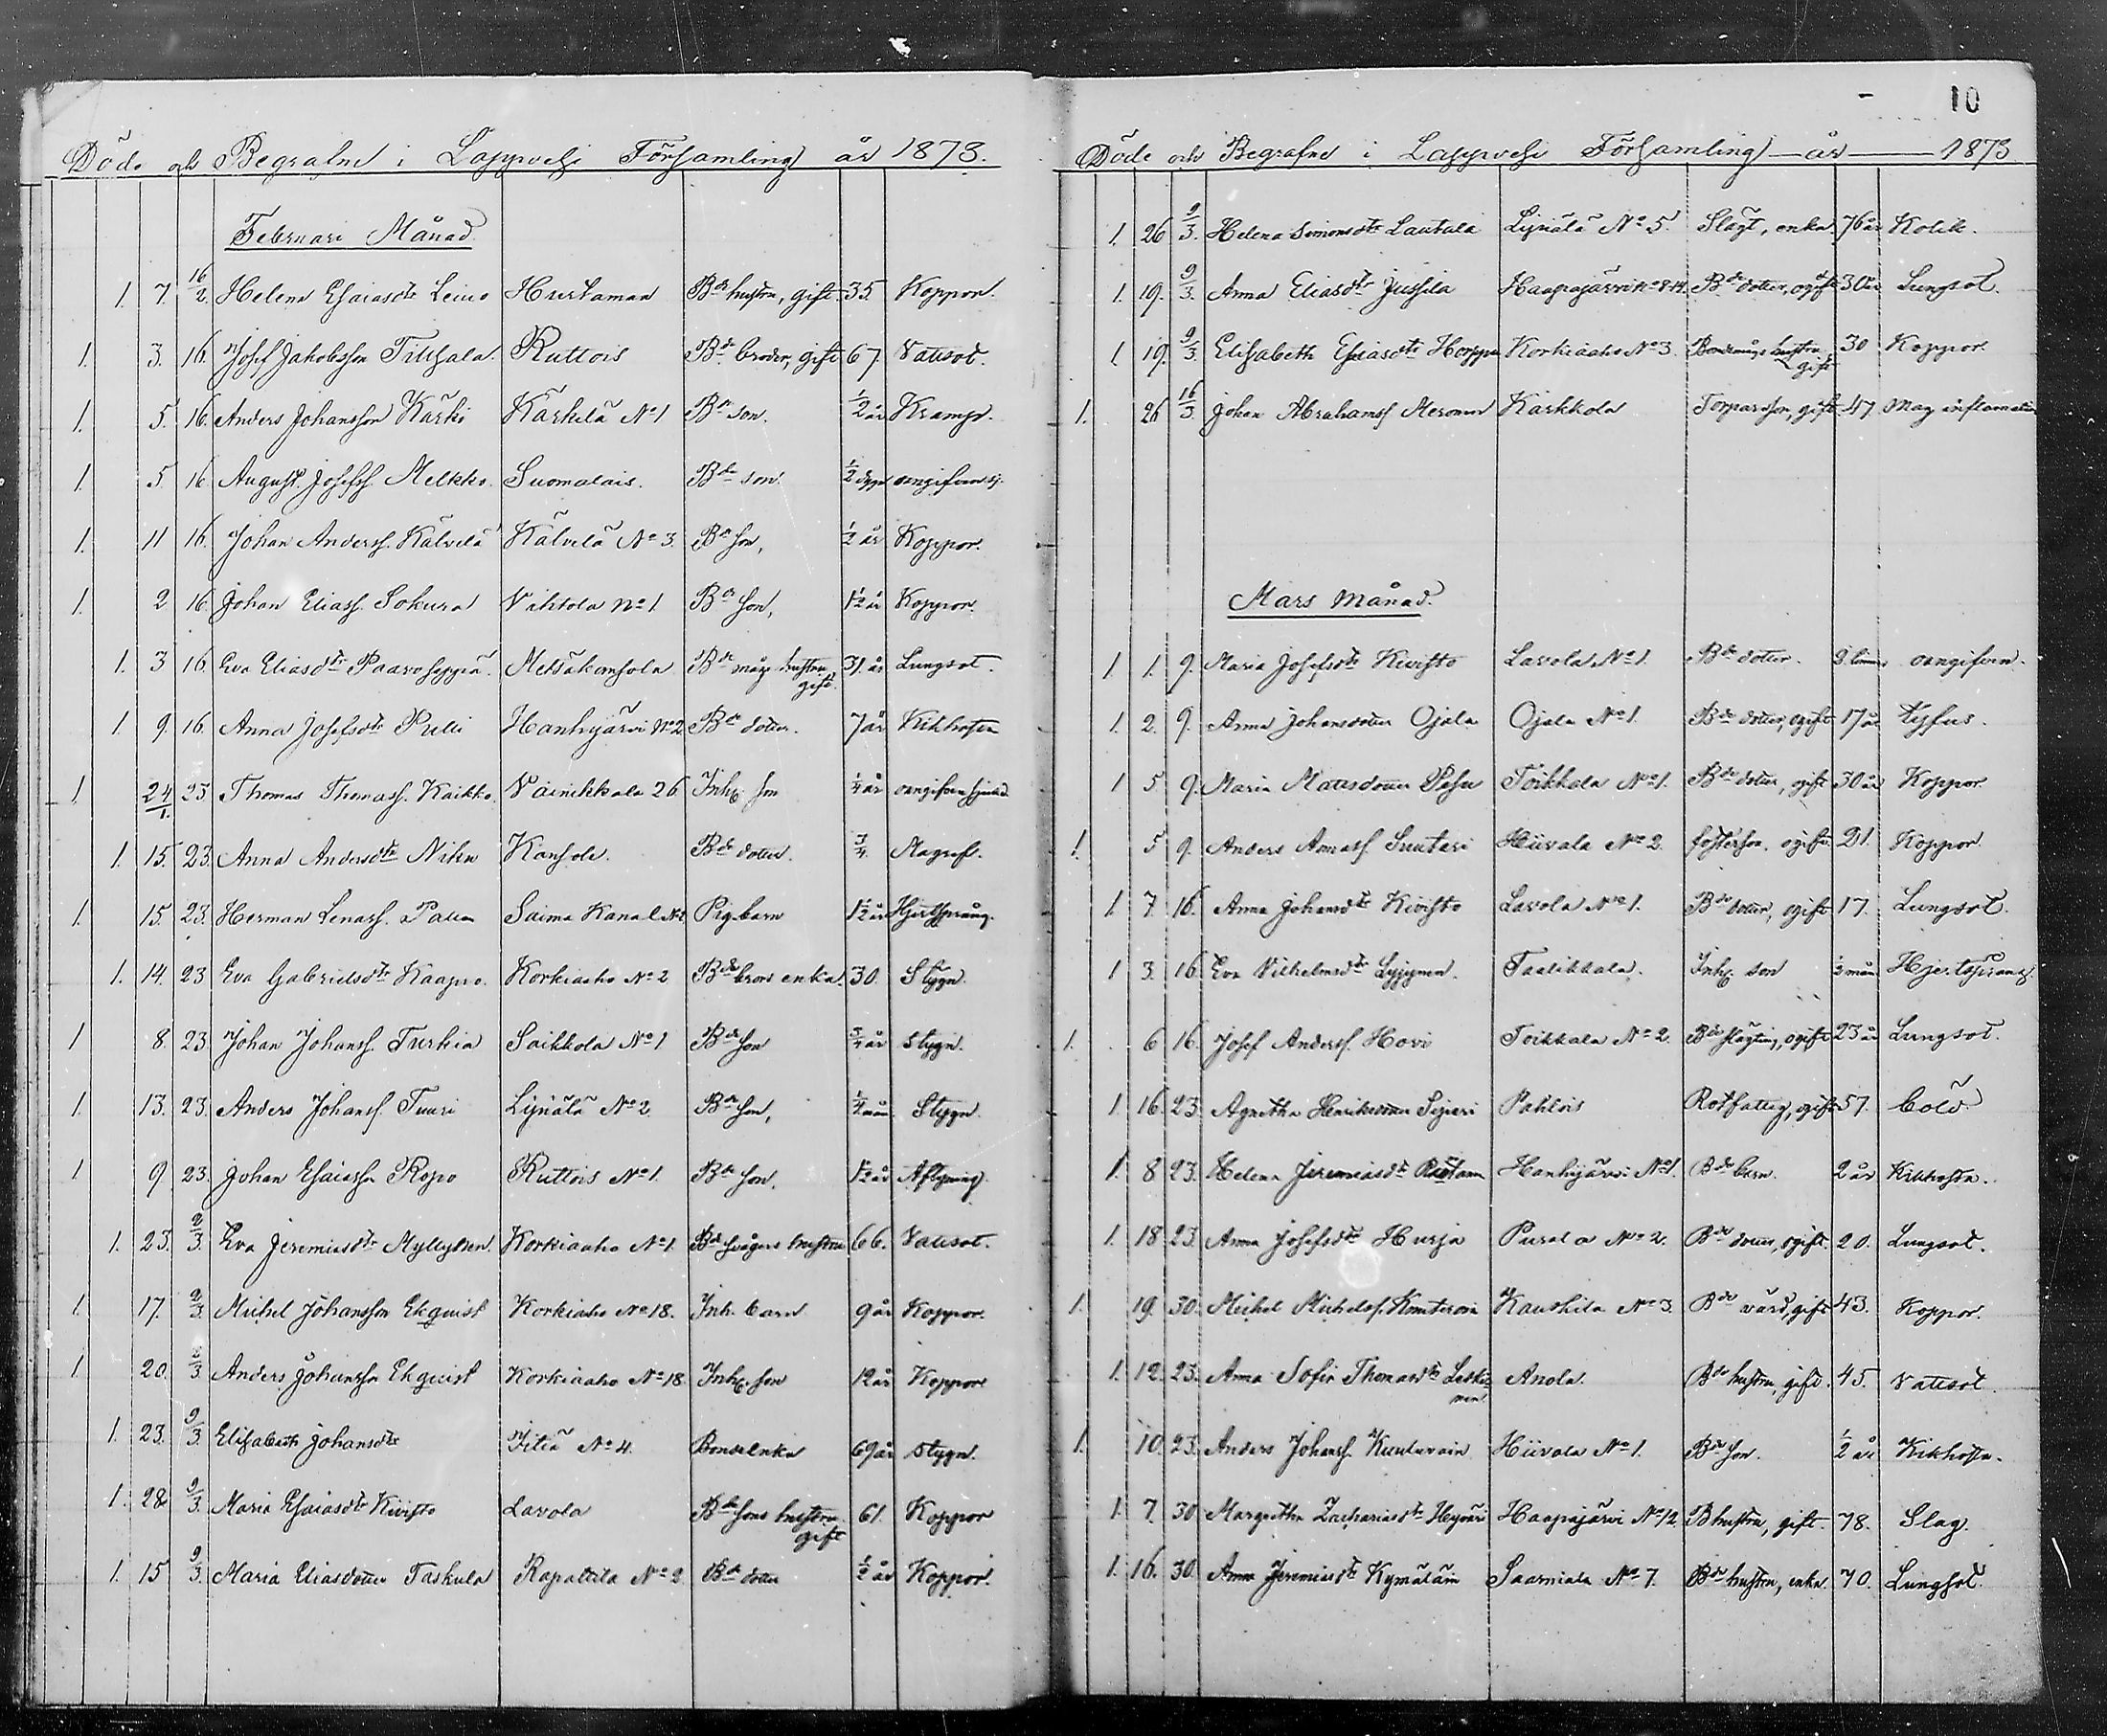 Döde och Begrafne i Lappvesi Församling år 1873.
Februari Månad
1. 7. 16/2. Helena Esaiasdtr Leino Hurtaman Bdes hustru, gift 35. Koppor.
1. 3. 16. Josef Jakobsson Ruttois Bde broder, gift 67. Vattsot.
1. 5. 16. Anders Johansson Kärki Kärkilä No 1 Bde son. 1/2 år Kramp.
1. 5 16 August Josefss. Melkko. Suomalais. Bde son. 1/2 dygn oangifven sj.
1. 11 16. Johan Anderss. Kälvelä Kälvelä No 3. Bde son, 1/2 år Koppor.
1. 2 16 Johan Eliass. Sokura Vihtola No 1. Bde son, 1 1/2 år Koppor.
1. 3 16. Eva Eliasdtr Paavoseppä. Metsäkansola Bde mågs hustru 31. år Lungsot.
gift.
1 9. 16. Anna Josefsdtr Pulli Hanhijärvi No 2 Bde dotter. 7 år Kikhosta
1 24/1. 23. Thomas Thomass. Kaikko. Vainikkala 26 Inh: son 1/4 år oangifven sjukd.
1. 15. 23. Anna Andersdtr Kansola. Bde dotter. 3/4. Magref.
1. 15. 23. Herman Lenass. Saima Kanal Pigebarn 1 1/2 år Hjertsprång.
1. 14. 23 Eva Gabrielsdtr Kaapro. Korkiaaho No 2 Bde brors enka. 30. Stygn.
1 8. 23. Johan Johanss. Turkia Saikkola No 1 Bde son 3/4 år Stygn.
1. 13. 23. Anders Johanss. Tuuri Lyijälä No 2 Bde son, Stygn.
1 9 23. Johan Esaiasson Ropo Ruttois No 1. Bde son. 1 1/2 år Aftyning
1. 23. 9/3. Eva Jeremiasdtr Myllylsen. Korkiaaho No 1. Bde svågers hustru 66. Vattsot.
1. 17. 9/3. Michel Johansson Ekqvist Korkiaho No 18. Inh. barn 9 år Koppor.
1 20. 9/3. Anders Johansson Ekqvist Korkiaaho No 18 Inh: son 12 år Koppor
1. 23. 9/3. Elisabeth Johansdtr Iitiä No 4. Bondenka 69 år Stygn.
1. 28. 9/3. Maria Esaiasdtr Kivisto Lavola Bde sons hustru 61. Koppor
gift
1. 15 9/3. Maria Eliasdotter Taskula Rapattila No 2 Bde dotter 1/2 år Koppor.
10
Döde och Begrafne i Lappvesi Församling år 1873
1. 26 9/3. Helena Simonsdtr Lautala Lyijälä No 5. Slägt, enka 76 år Kolik.
1. 19. 9/3. Anna Eliasdtr Jussila Haapajärvi No 8-14. Bde dotter, ogift 30 år Lungsot.
1 19. 9/3. Elisabeth Esaiasdtr Horppu Korkiaaho No 3. Bondemågs hustru, 30 Koppor.
gift
1. 26 16/3 Johan Abrahamss Meronen Kärkkola Torpareson, gift 47 Mag inflamation
Mars månad.
1. 1. 9. Maria Josefsdtr Kivisto Lavola No 1. Bde dotter. oangifven.
1 2. 9. Anna Johansdotter Ojala Ojala No 1. Bde dotter, ogift 17 år Tyfus.
1 5 9. Maria Mattsdotter Pesu Toikkala No 1. Bde dotter, ogift 30 år Koppor.
1. 5 9. Anders Adamss. Suutari Hiivala No 2. fosterson. ogift. 21. Koppor
1. 7. 16. Anna Johansdtr Kivisto Lavola No 1. Bde dotter, ogift 17. Lungsot.
1 3. 16. Eva Vilhelmsdtr Lyijynen. Taalikkala. Inh: son 1/2 mån Hjertsprång.
1. 6 16. Josef Anderss. Hovi Toikkala No 2. Bde slägting, ogift 23 år Lungsot.
1. 16. 23. Agnetha Henriksdotter Sijeri Pahlois Rotfattig, ogift 57. Cold
1. 8 23. Helena Jeremiasdtr Hanhijärvi No 1. Bde barn. 2 år Kikhosta.
1. 18 23. Anna Josefsdtr Hurja Purala No 2. Bde dotter, ogift. 20. Lungsot.
1. 19. 30. Michel Michelss. Kauskila No 3. Bde värd, gift 43. Koppor.
1. 12. 23. Anna Sofia Thomasdtr Leski- Anola. Bde hustru, gift. 45. Vattsot.
nen
1. 10. 23. Anders Johanss. Kuutuvain Hiivola No 1. Bde son. 1/2 år Kikhosta.
1. 7. 30. Margretha Zachariasdtr Heyväri Haapajärvi No 12. B hustru, gift. 78. Slag.
1. 16. 30. Anna Jeremiasdtr Kymäläin Saarniala No 7. Bde hustru, enka. 70. Lungsot.